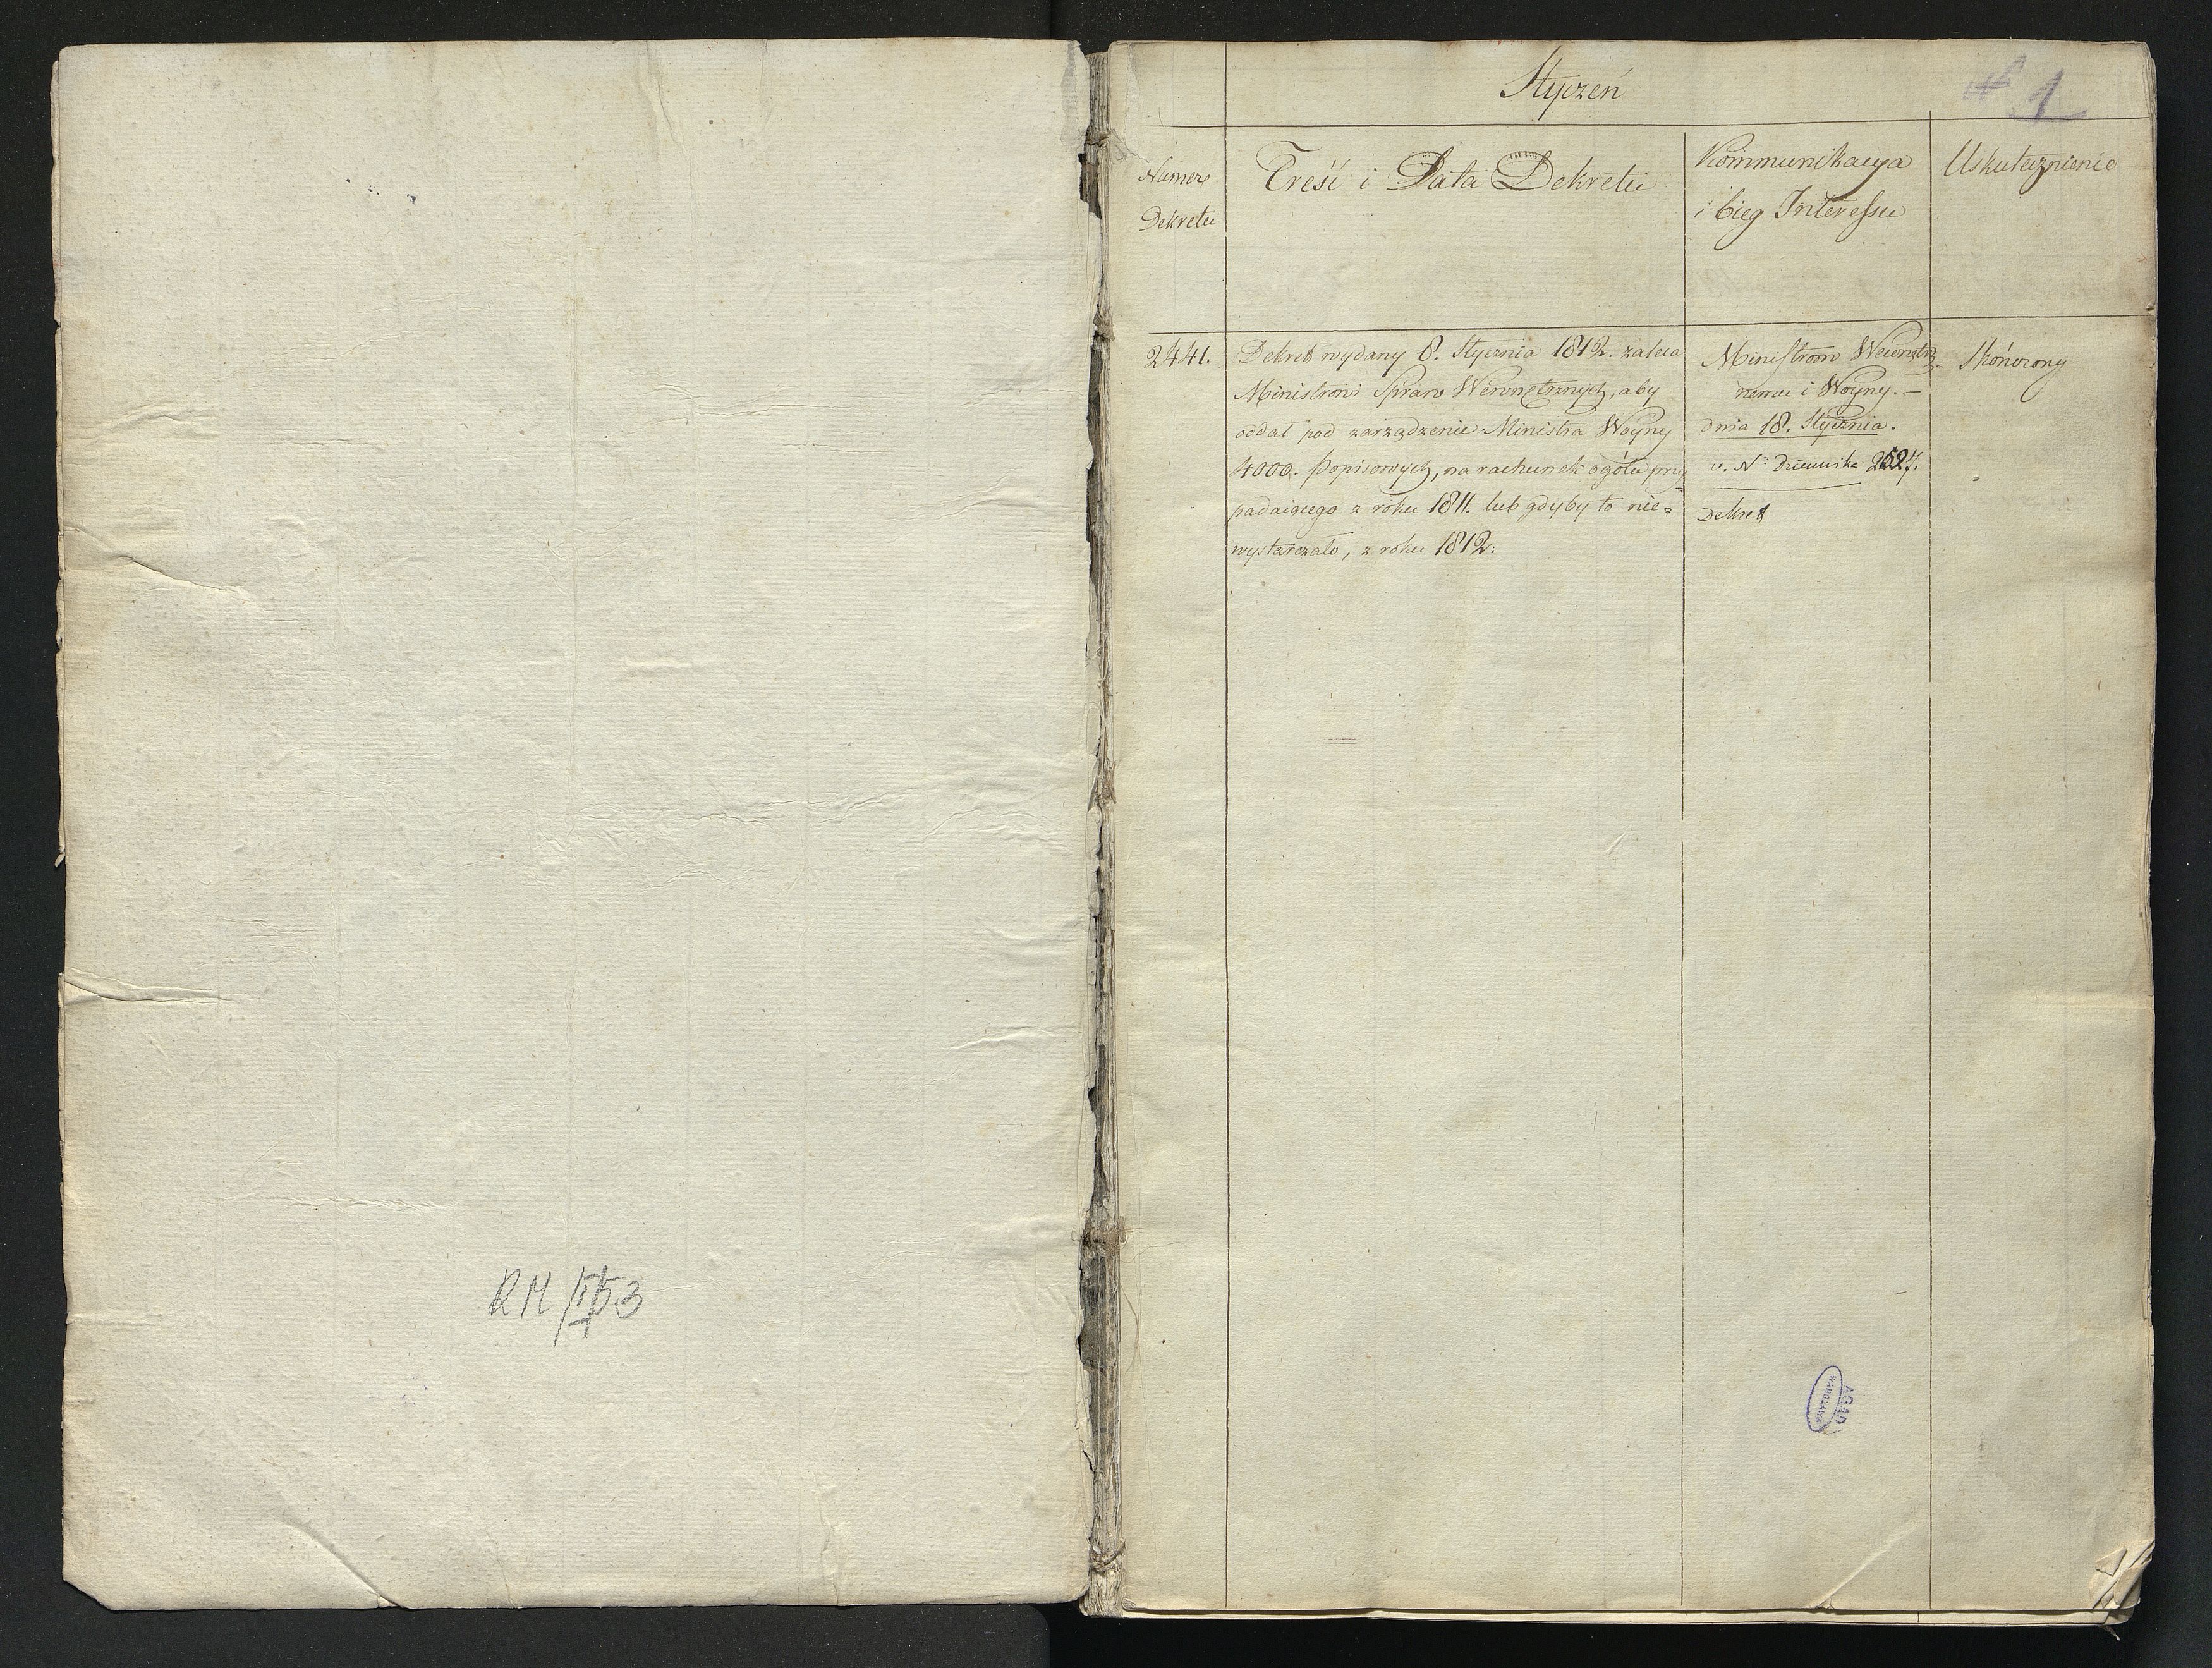 RM/II/53
Styczeń
1
Numer
Dekretu
Treść i Data Dekretu
Kommunikacya
i bieg Interessu
Uskutecznienie
2441.
Dekret wydany 8. Stycznia 1812. zaleca
Ministrowi Spraw Wewnętrznych, aby
oddał pod zarządzenie Ministra Woyny
4000. Popisowych, na rachunek ogółu przy
padaiącego z roku 1811. lub gdyby to nie=
wystarczało, z roku 1812.
Ministrom Wewnętrz-
nemu i Woyny. –
dnia 18. Stycznia.
v. Nr Dziennika 2527.
Dekret
Skończony
AGAD
WARSZAWA